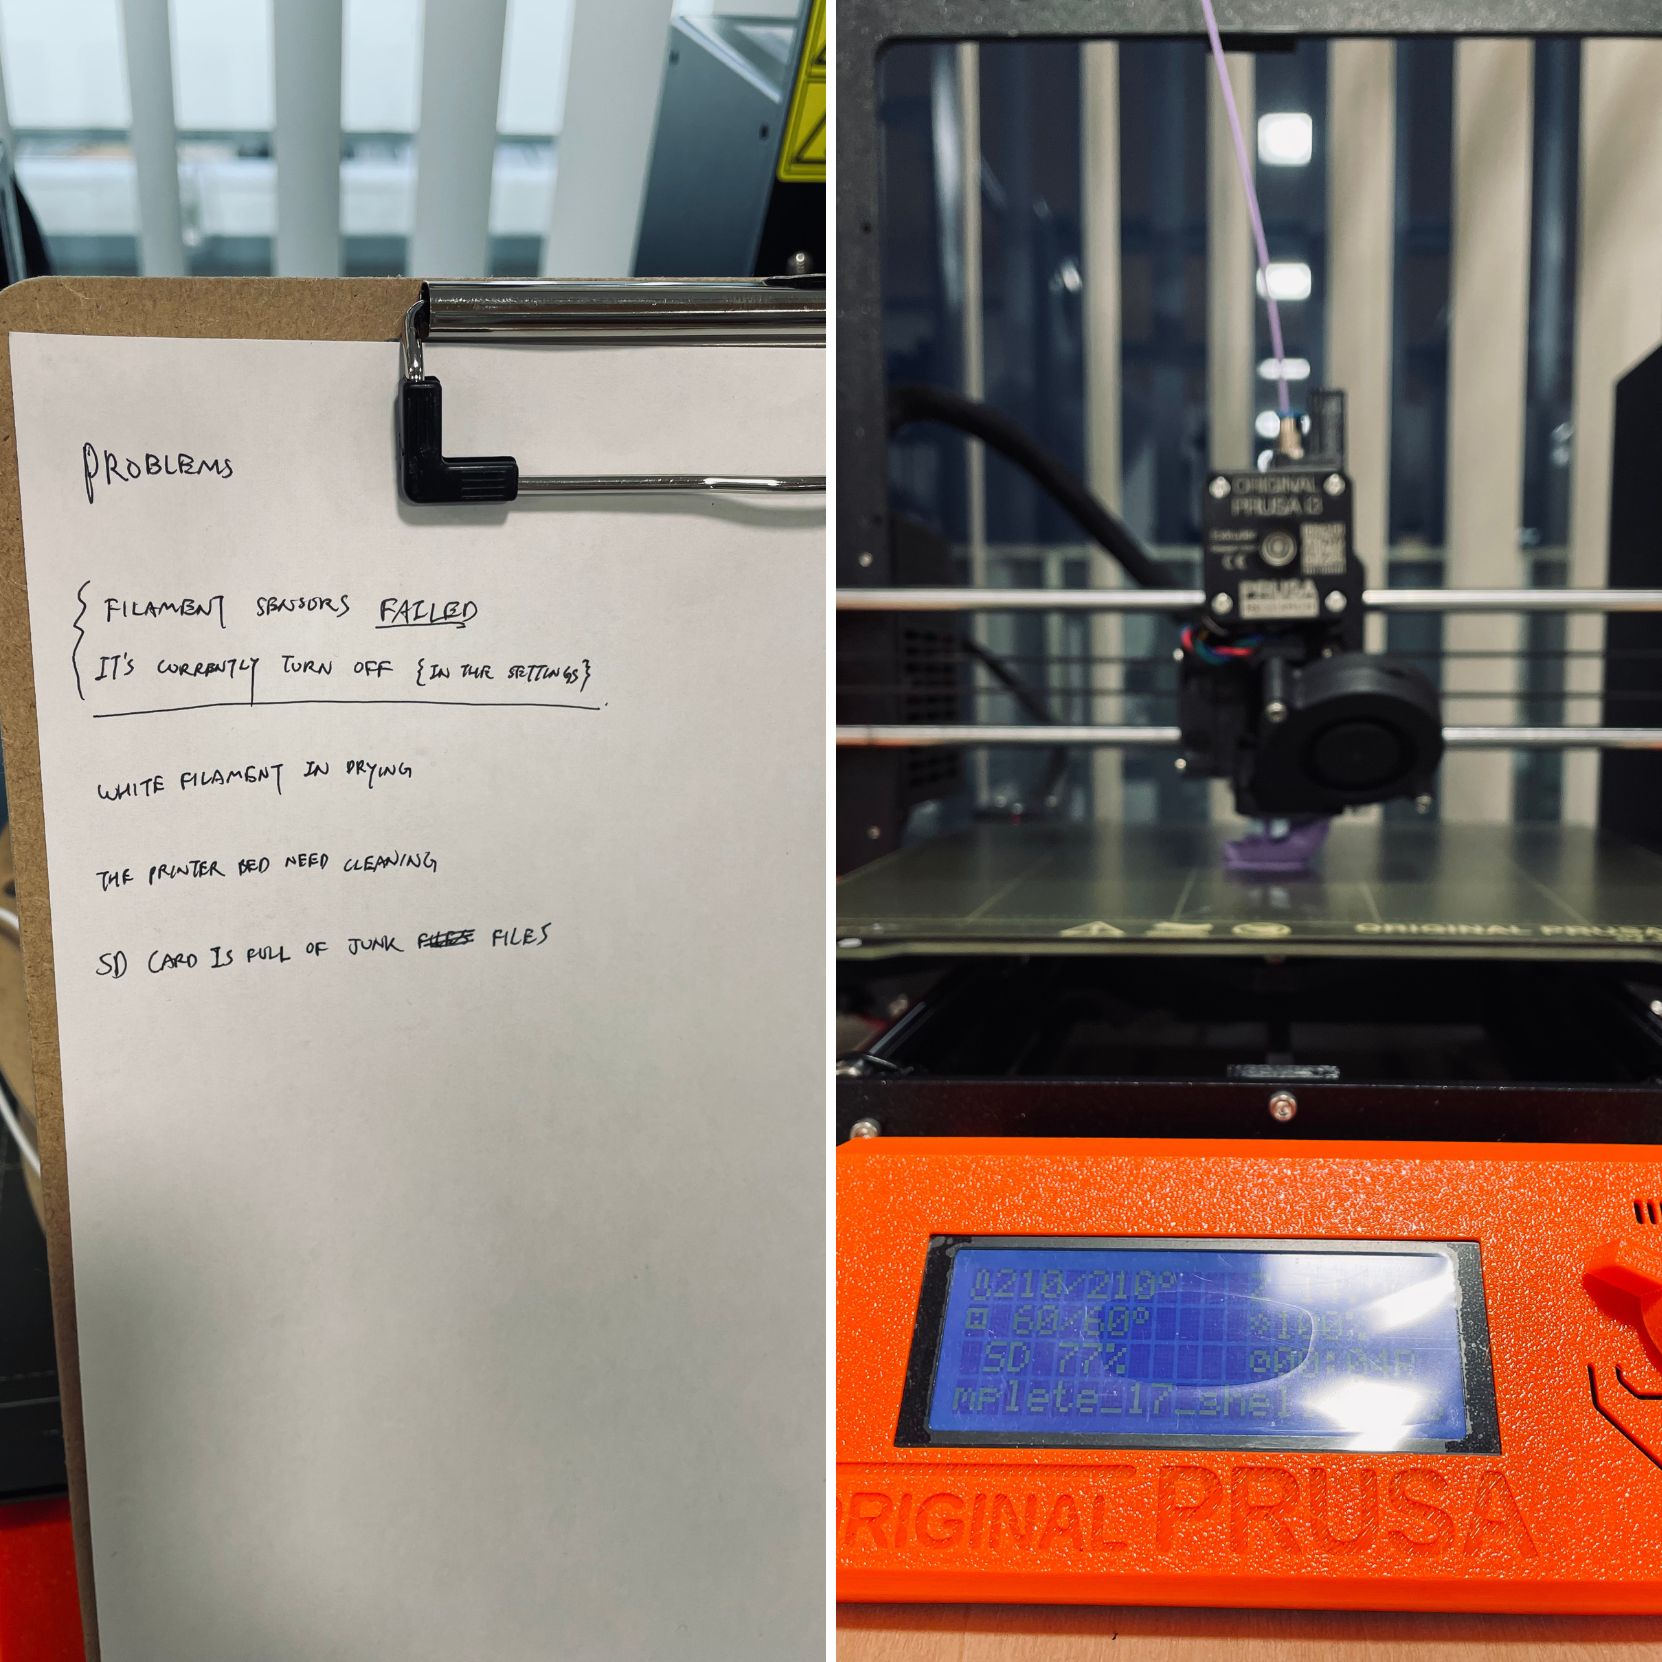 PROBLEMS
FILAMENT SENSORS FAILED
IT'S CURRENTLY TURN OFF {IN THE SETTINGS}
WHITE FILAMENT IN DRYING
THE PRINTER BED NEED CLEANING
SD CARD IS FULL OF JUNK FILES
ORIGINAL
PRUSA i3
Extruder
CE
PRUSA
ORIGINAL PRUSA
210/210°
60/60° 100%
SD 77%
mplete_17_shel
ORIGINAL PRUSA